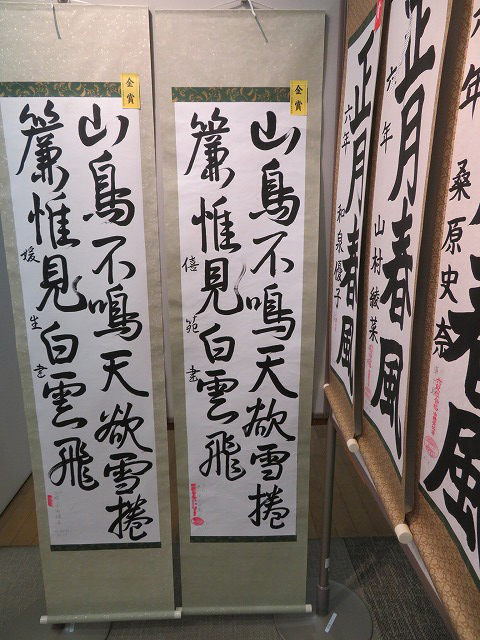 金賞
山鳥不鳴天欲雪捲
簾惟見白雲飛
媛生書
金賞
山鳥不鳴天欲雪捲
簾惟見白雲飛
僖苑書
正月春風
六年
和泉優子
正月春風
六年
山村綾菜
春風
六年
桑原史奈